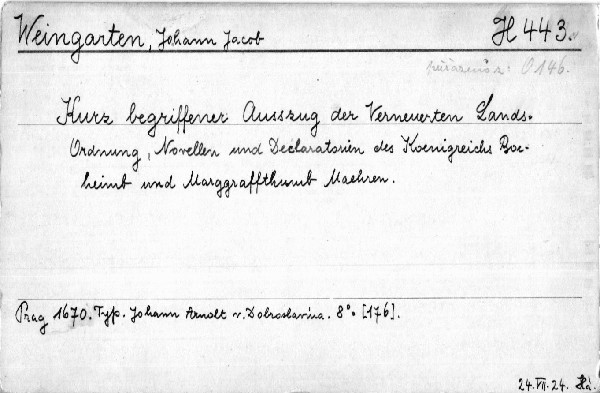 Weingarten, Johann Jacob H 443.
O 146.
Kurz begriffener Ausszug der Verneuerten Lands-
Ordnung, Novellen und Declaratorien des Koenigreichs Boe-
heimb und Marggraffthumb Maehren.
Prag 1670. Typ. Johann Arnolt v. Dobroslavina. 8°. [176].
24.VII.24.